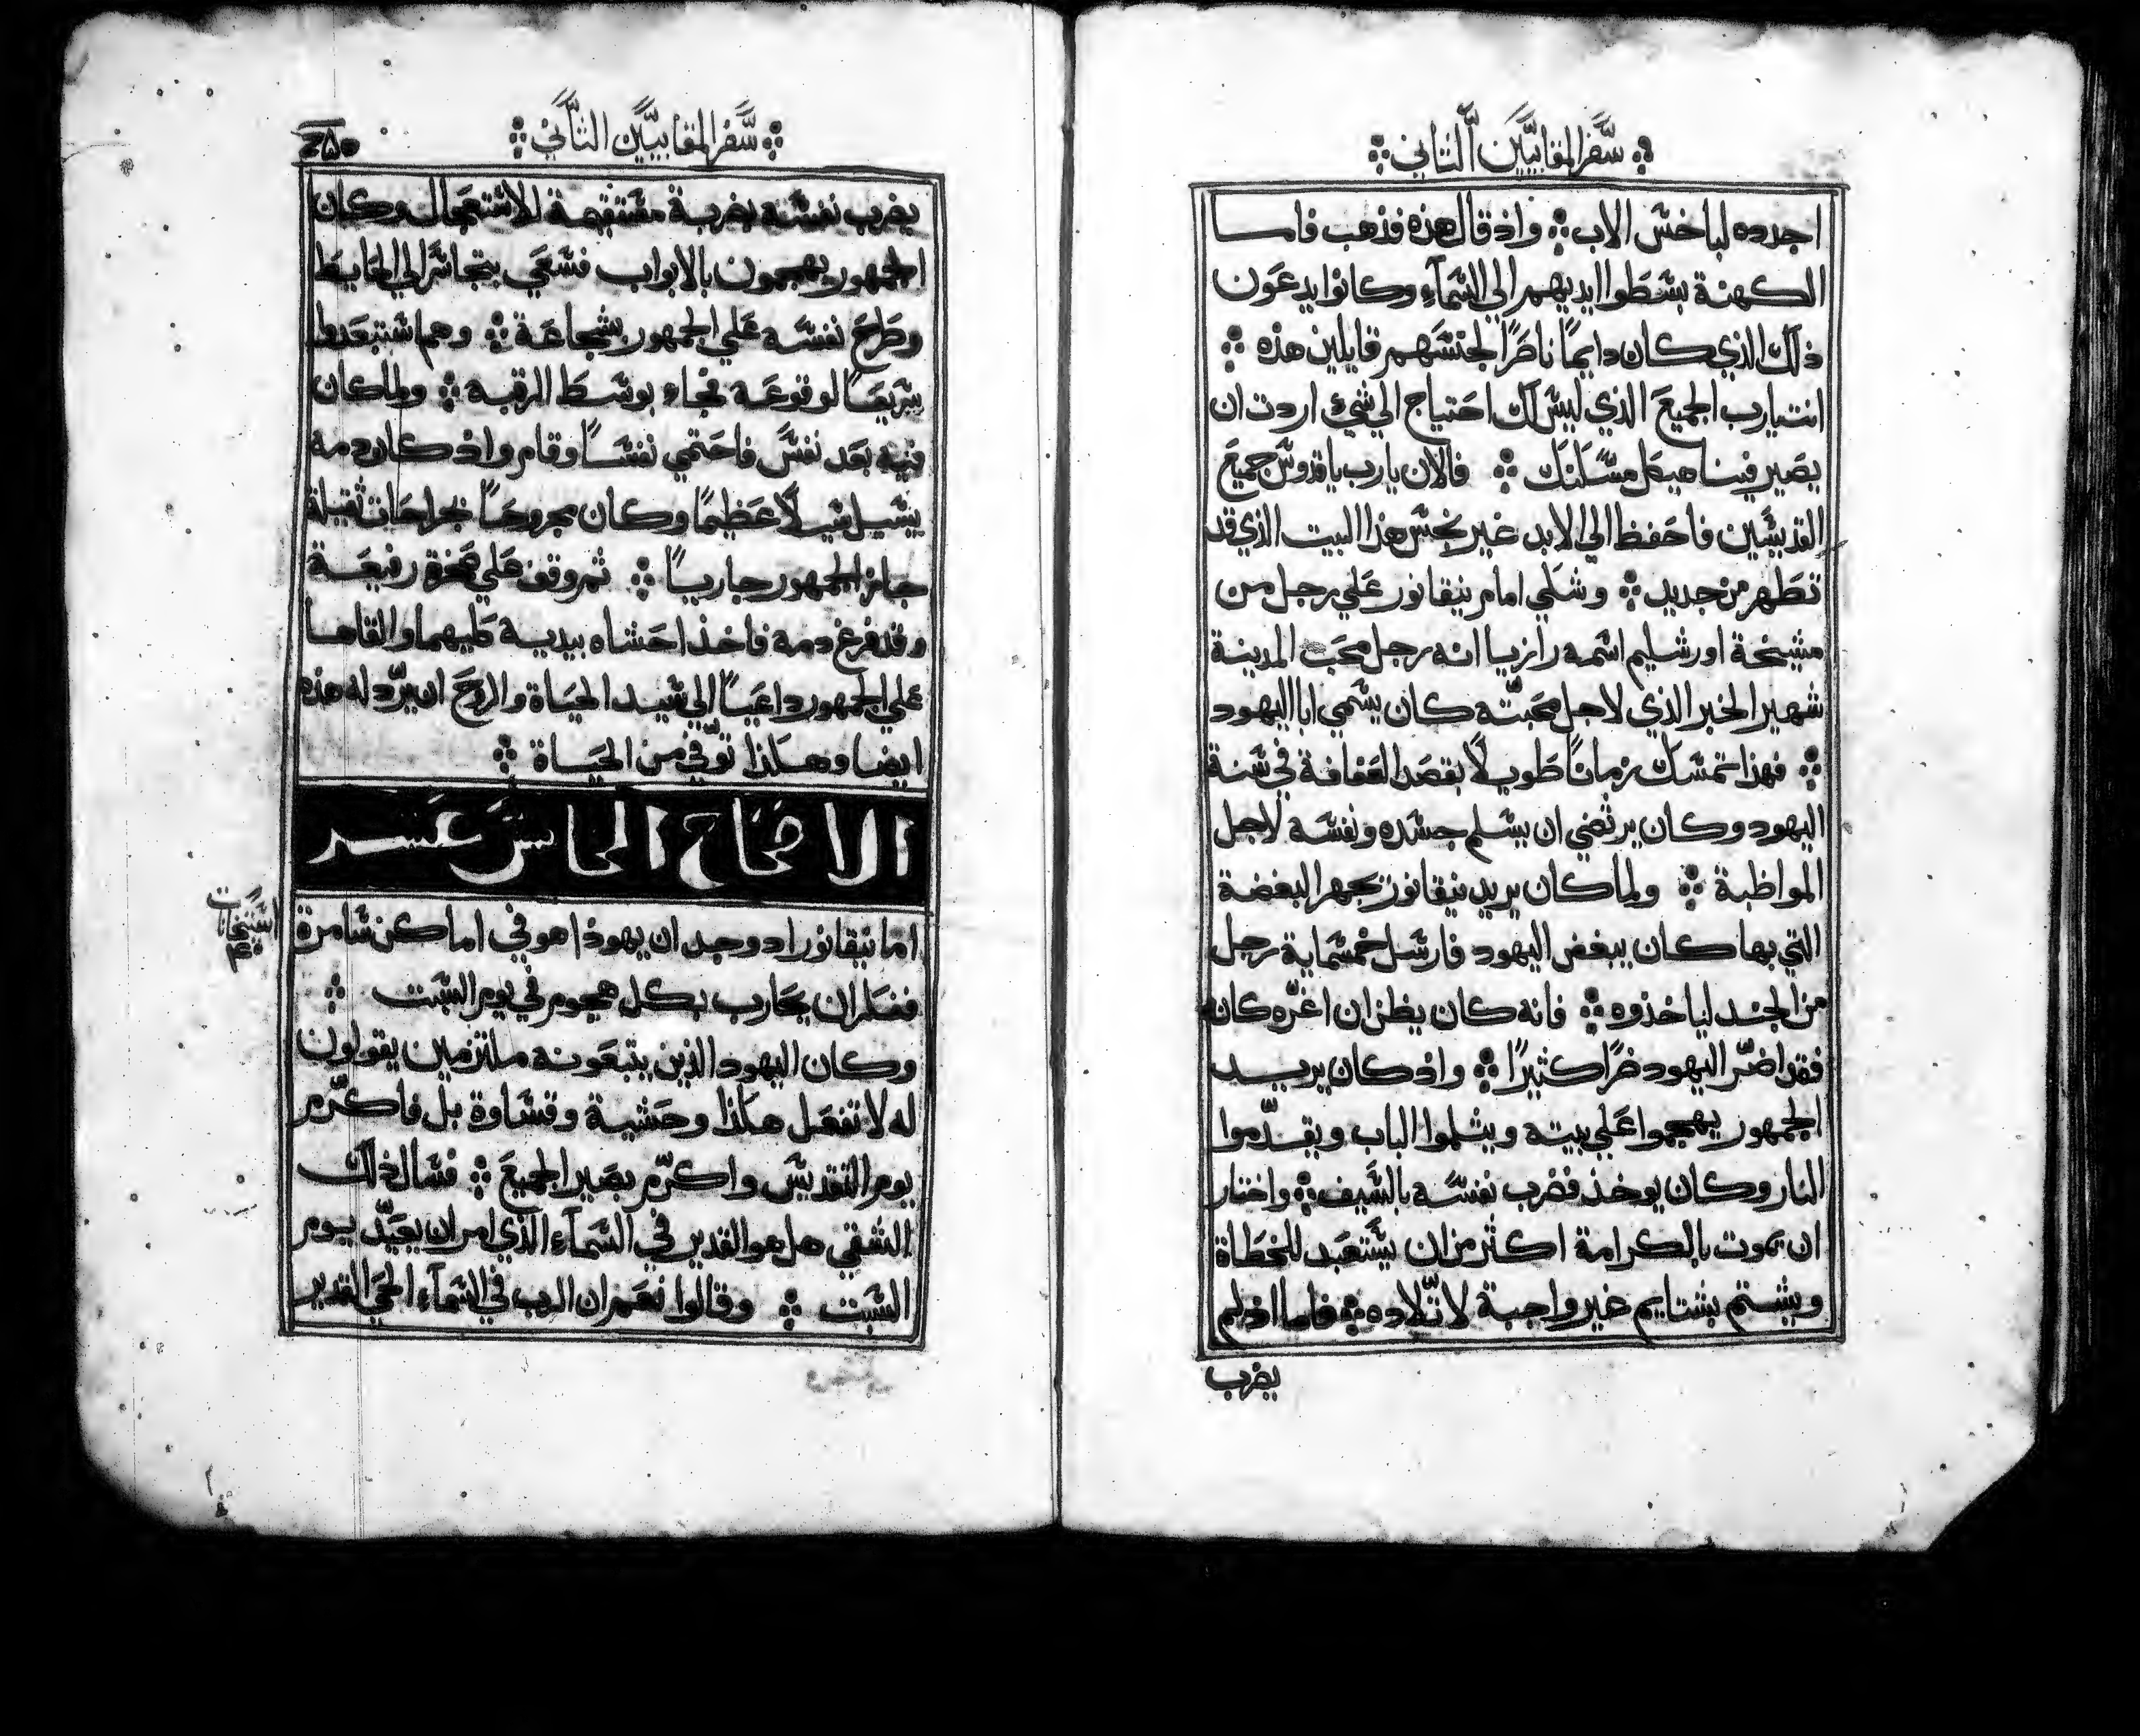 سفر المقابيين الثاني
اجدده لباخس الاب ⁘ واذ قال هذه فذهب فاما
الكهنة بسطوا ايديهم الي السمآء وكانوا يدعون
ذلك الذي كان دايمًا ناظرًا لجنسهم قايلين هذه ⁘
انت يا رب الجميع الذي ليس لك احتياج الي شيء اردت ان
يصير فينا هيكل مسكنك ⁘ فالان يا رب يا قدوس جميع
القديسين فاحفظ الي الابد غير نجس هذا البيت الذي قد
تطهر من جديد ⁘ وشكي امام نيقانور علي رجل من
مشيخة اورشليم اسمه رازيا انه رجل محب المدينة
شهير الخبر الذي لاجل محبته كان يسمي ابا اليهود
⁘ فهذا تمسك زمانًا طويلًا بقصد العفافة في سنة
اليهود وكان يرتضي ان يسلم جسده ونفسه لاجل
المواظبة ⁘ ولما كان يريد نيقانور يجهر البغضة
التي بها كان يبغض اليهود فارسل خمسماية رجل
من الجند لياخذوه ⁘ فانه كان يظن ان اغره كانه
فقد اضر اليهود ضرًا كثيرًا ⁘ واذ كان يريد
الجمهور يهجموا علي بيته ويثلموا الباب ويقدموا
النار وكان يوخذ فضرب نفسه بالسيف ⁘ واختار
ان يموت بالكرامة اكثر من ان يستعبد للخطاة
ويشتم بشتايم غير واجبة لاتلاده ⁘ فاما اذ لم
يضرب
سفر المقابيين الثاني
٢٥٠
يضرب نفسه بضربة مستقيمة للاستعجال وكان
الجمهور يهجمون بالابواب فسعي بتجاسر الي الحايط
وطرح نفسه علي الجمهور بشجاعة ⁘ وهم استبعدوا
سريعًا لوقوعه فجاء بوسط الرقبة ⁘ ولما كان
فيه بعد نفس فاحتمي نفسًا وقام واذ كان دمه
يسيل سيلًا عظيمًا وكان مجروحًا بجراحات ثقيلة
جاز الجمهور جاريًا ⁘ ثم وقف علي صخرة رفيعة
وقد فرغ دمه فاخذ احشاه بيديه كليهما والقاها
علي الجمهور داعيًا الي سيد الحياة والروح ان يرد له هذه
ايضا وهكذا توفي من الحياة ⁘
الاصحاح الخامس عشر
اما نيقانور اذ وجد ان يهوذا هو في اماكن سامرة
ففكر ان يحارب بكل هجوم في يوم السبت ⁘
وكان اليهود الذين يتبعونه ملتزمين يقولون
له لا تفعل هكذا وحشية وقساوة بل فاكرم
يوم التقديس واكرم بصير الجميع ⁘ فسال ذلك
الشقي هل هو القدير في السمآء الذي امر ان يعيد يوم
السبت ⁘ وقالوا نعم ان الرب في السمآء الحي القدير